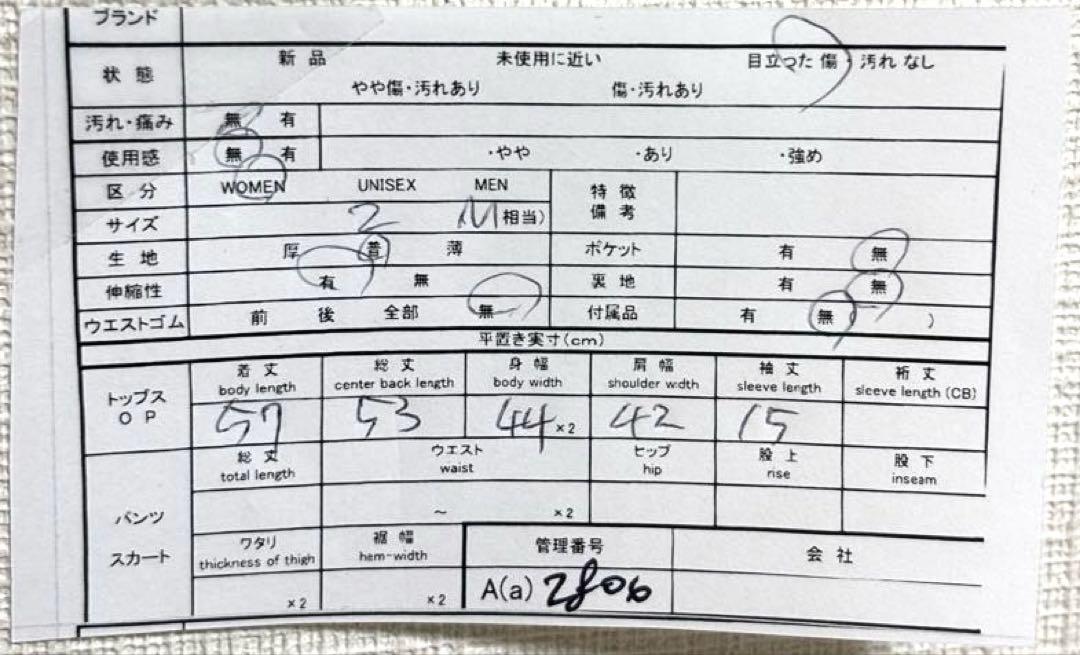 ブランド
状態 新品 未使用に近い 目立つた傷・汚れなし
やや傷・汚れあり 傷・汚れあり
汚れ・痛み 無 有
使用感 無 有 ・やや ・あり ・強め
区分 WOMEN UNISEX MEN 特徴
備考
サイズ 2 M相当)
生地 厚 普 薄 ポケット 有 無
伸縮性 有 無 裏地 有 無
ウエストゴム 前 後 全部 無 付属品 有 無 )
平置き実寸(cm)
トップス
OP
着丈 総丈 身幅 肩幅 袖丈 裄丈
body length center back length body width shoulder width sleeve length sleeve length (CB)
57 53 44 ×2 42 15
パンツ
スカート
総丈 ウエスト ヒップ 股上 股下
total length waist hip rise inseam
~ ×2
ワタリ 裾幅 管理番号 会社
thickness of thigh hem-width
×2 ×2 A(a) 2806